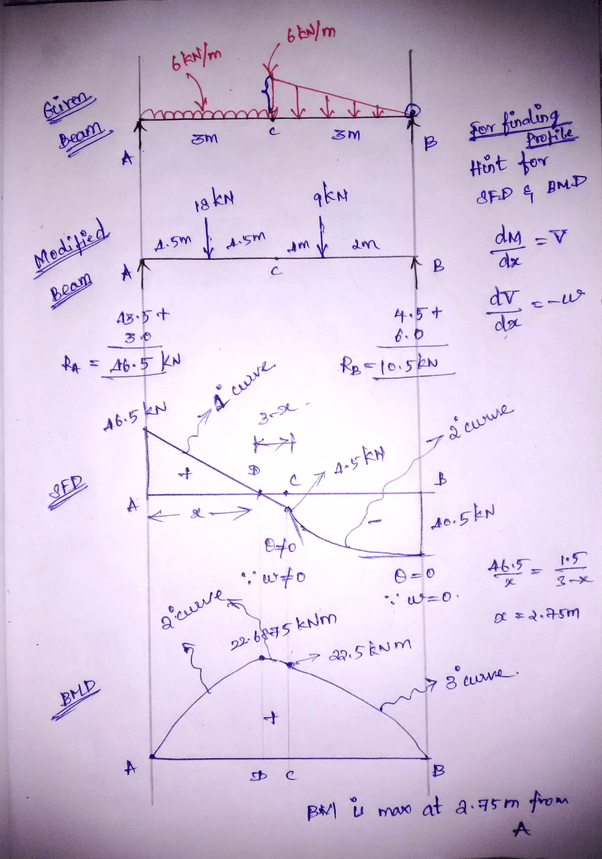 6 kN/m
6 kN/m
Given
Beam
A
3m
C
3m
B
For finding
Profile
Hint for
SFD & BMD
dM/dx = V
dV/dx = -w
18 kN
9 kN
Modified
Beam
1.5m
1.5m
1m
2m
A
C
B
13.5 +
3.0
RA = 16.5 kN
4.5 +
6.0
RB = 10.5 kN
16.5 kN
1° curve
3-x
2° curve
SFD
+
D
C
1.5 kN
B
A
x
-
10.5 kN
θ≠0
∵ w≠0
θ=0
∵ w=0.
16.5/x = 1.5/3-x
x = 2.75m
2° curve
22.6875 kNm
22.5 kNm
BMD
+
3° curve.
A
D
C
B
BM is max at 2.75m from
A